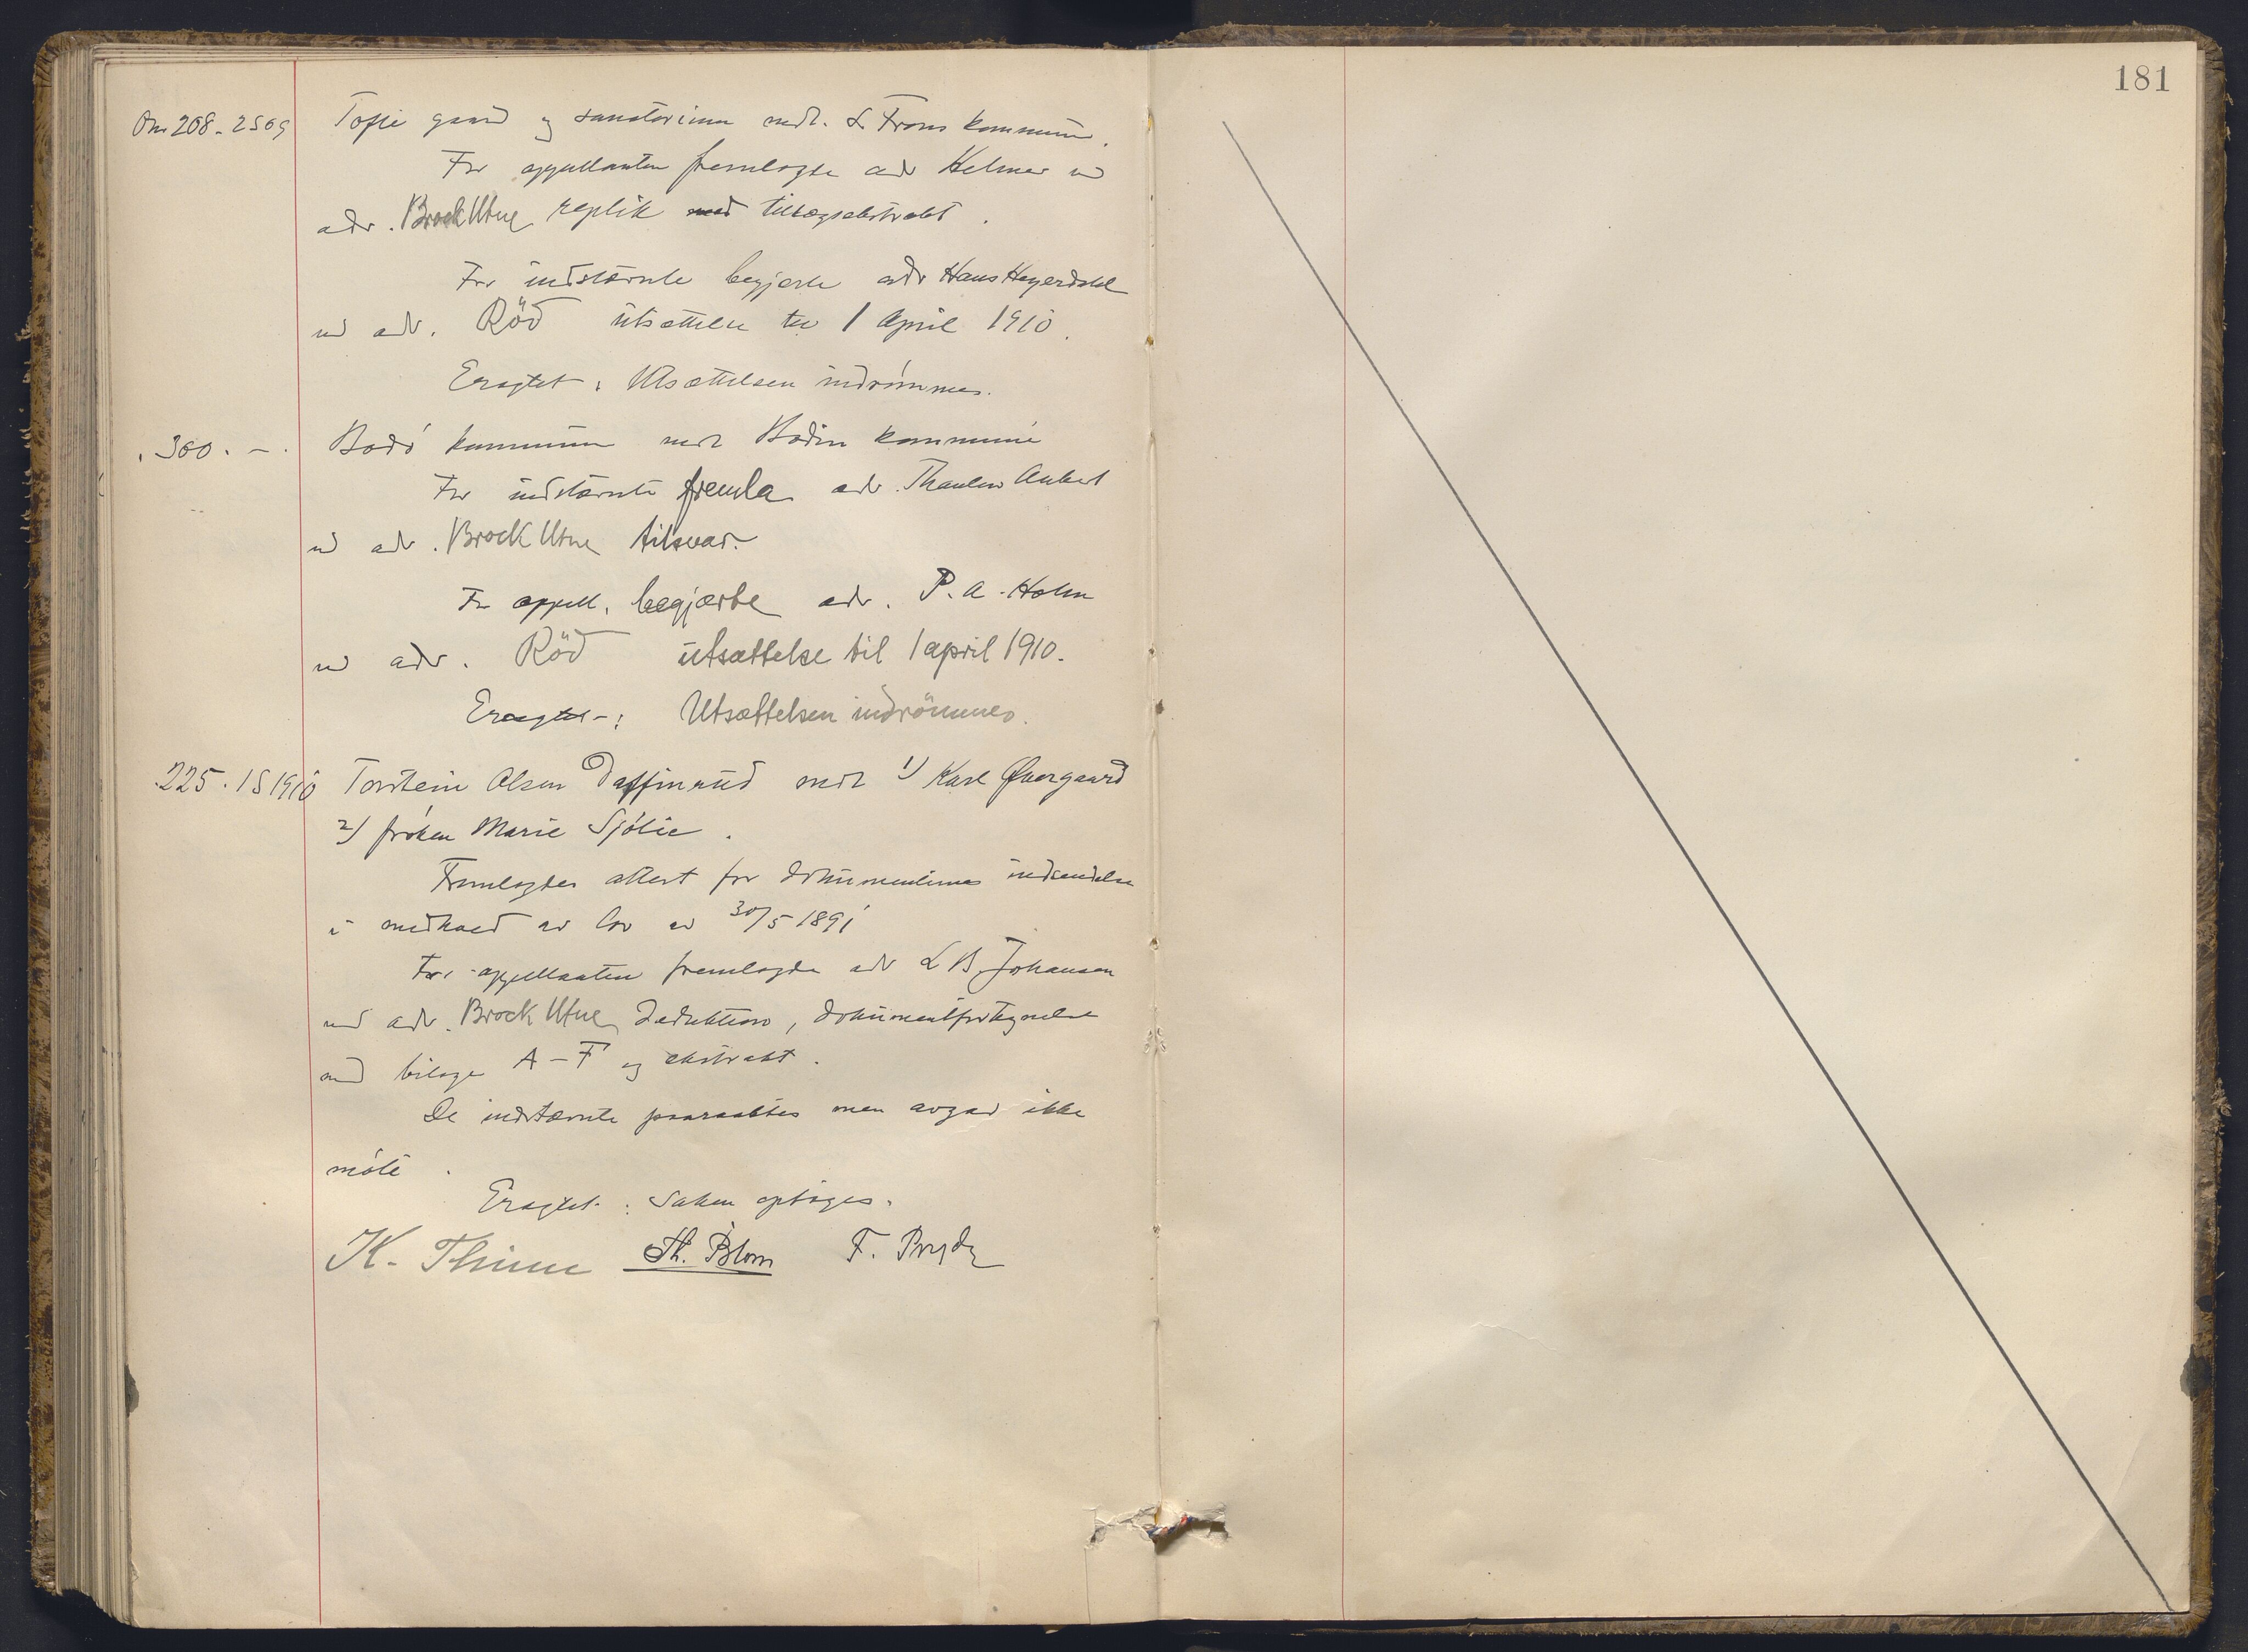 181
Om 208. 2S 09 Tofte gaard og sanatorium mot. S. Frons kommune.
For appellanten fremlagde adv Helmer ved
adv. Brock Utne replik med tillægsekstrakt.
For indstævnte begjærte adv Hans Heyerdahl
ved adv. Röd utsættelse til 1 April 1910.
Eragtet: Utsættelsen indrömmes.
. 300. -. Bodö kommune mot Bodin kommune
For indstævnte fremla adv. Thaulow Aubert
ved adv. Brock Utne tilsvar.
For appell. begjærte adv. P. A. Holm
ved adv. Röd utsættelse til 1 april 1910.
Eragtet: Utsættelsen indrömmes.
225. 1S 1910 Torstein Olsen mot 1) Karl Øvergaard
2) fröken Marie Sjölie.
Fremlagdes attest for dokumenternes indsendelse
i medhold av lov av 30/5 1891
For appellanten fremlagde adv L B. Johansen
ved adv. Brock Utne deduktion, dokumentfortegnelse
med bilage A-F og ekstrakt.
De indstævnte paaraabtes men avgav ikke
möte.
Eragtet: Saken optages.
K. Thinn Th. Blom F. Bryde